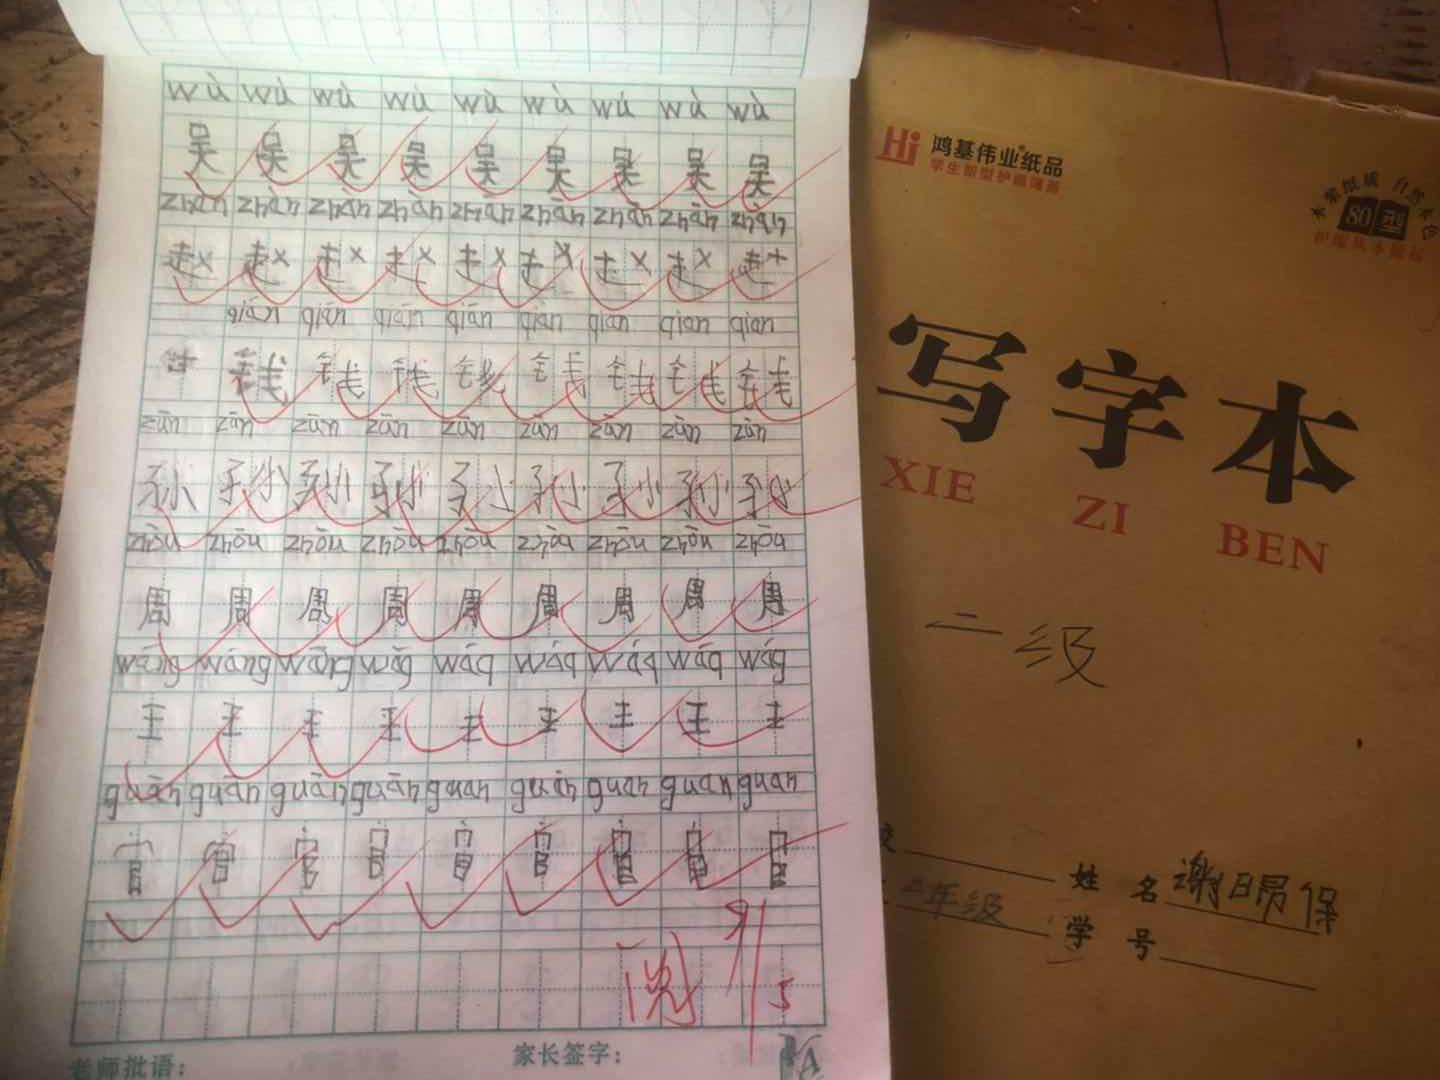 wù wù wù wù wù wù wù wù wù
吴 吴 吴 吴 吴 吴 吴 吴 吴
zhàn zhàn zhàn zhàn zhàn zhàn zhàn zhàn zhàn
赵 赵 赵 赵 赵 赵 赵 赵 赵
qián qián qián qián qián qian qian qian
钱 钱 钱 钱 钱 钱 钱 钱
zūn zūn zūn zūn zūn zūn zūn zūn zūn
孙 孙 孙 孙 孙 孙 孙 孙 孙
zhōu zhōu zhōu zhōu zhōu zhōu zhōu zhōu zhōu
周 周 周 周 周 周 周 周 周
wáng wáng wáng wág wág wág wág wág wág
王 王 王 王 王 王 王 王 王
guān guān guān guān guan guān guan guan guan
官 官 官 官 官 官 官 官 官
阅
9/5
老师批语：
家长签字：
Hi 鸿基伟业纸品
学生新型护眼簿册
木浆纸质 自然本色
80型
写字本
XIE ZI BEN
二级
校 姓 名 谢明保
二年级 学 号